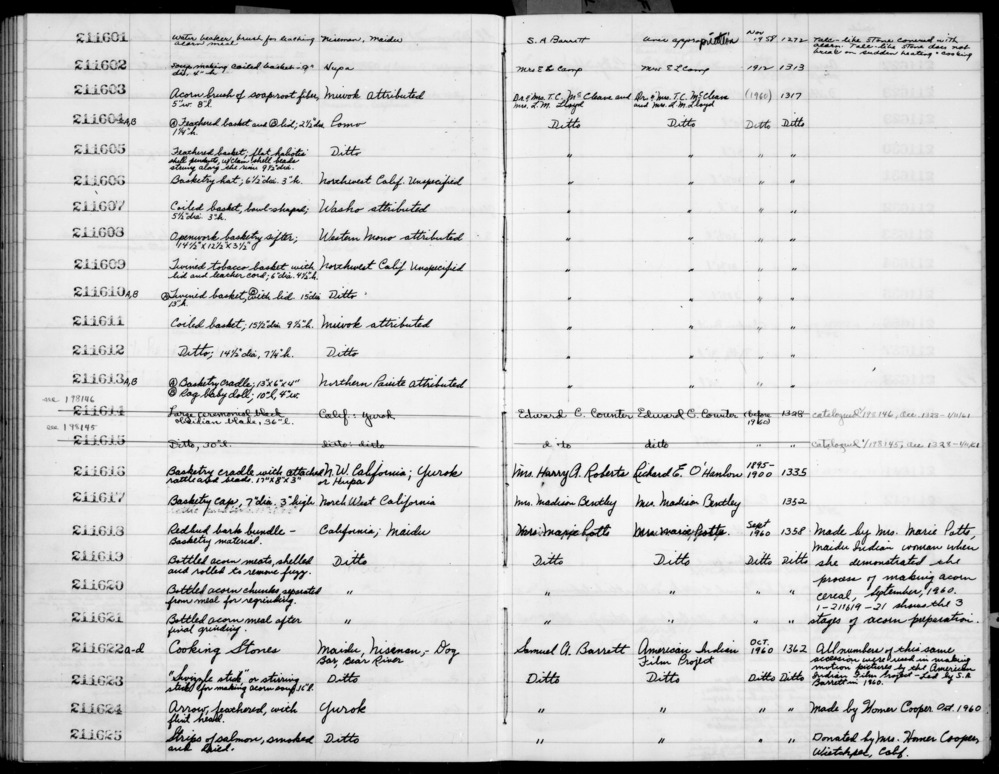 211601 Water beaker, brush for leaching Nisenan, Maidu S. A. Barrett Univ appropriation Nov 1958 1272 Talc-like stone covered with
acorn meal acorn. Talc-like stone does not
break on sudden heating + cooking
211602 Soup making coiled basket - 9" Hupa Mrs E L Camp Mrs E L Camp 1912 1313
dia. 4" h
211603 Acorn brush of soaproot fibre, Miwok Attributed Dr & Mrs. T.C. McCleave and Dr. & Mrs. T.C. McCleave (1960) 1317
5" w. 8" l. Mrs. L.M. Lloyd and Mrs. L.M. Lloyd
211604 A,B Ⓐ Feathered basket and Ⓑ lid; 2½" dia Pomo Ditto Ditto Ditto Ditto
1¼" h.
211605 Feathered basket, flat haliotis Ditto " " " "
shell pendants, w/clam shell beads
strung along the rim 9½" dia.
211606 Basketry hat; 6½" dia. 3" h. Northwest Calif. Unspecified " " " "
211607 Coiled basket, bowl-shaped; Washo attributed " " " "
5½" dia 3" h.
211608 Openwork basketry sifter; Western Mono attributed " " " "
14½" x 12½" x 3½"
211609 Twined tobacco basket with Northwest Calif Unspecified " " " "
lid and leather cord; 6" dia. 4½" h.
211610 A,B Ⓐ Twined basket, Ⓑ with lid 15" dia Ditto " " " "
13" h.
211611 Coiled basket; 15½" dia 9½" h. Miwok attributed " " " "
211612 Ditto; 14½" dia, 7¼" h. Ditto " " " "
211613 A,B Ⓐ Basketry cradle; 13" x 6" x 4" Northern Paiute attributed " " " "
Ⓑ Rag baby doll; 10" l, 4" w.
see 198146
211614 Large ceremonial black Calif: Yurok Edward C. Counter Edward C. Counter (before 1960) 1328 catalogued 1/198146, acc 1328 - 1/0/61
obsidian blade, 36" l.
see 198145
211615 Ditto, 30" l. ditto: ditto ditto ditto catalogued 1/198145, acc 1328 - 1/0/61
211616 Basketry cradle with attached N.W. California; Yurok Mrs. Harry A. Roberts Richard E. O'Hanlon 1895-1900 1335
rattle and beads. 17" x 8" x 3" or Hupa
211617 Basketry cap, 7" dia. 3" high North West California Mrs. Madison Bentley Mrs. Madison Bentley 1352
211618 Redbud bark bundle - California; Maidu Mrs. Marie Potts Mrs. Marie Potts Sept 1960 1358 Made by Mrs. Marie Potts,
Basketry material. Maidu Indian woman when
211619 Bottled acorn meats, shelled Ditto Ditto Ditto Ditto Ditto she demonstrated the
and rolled to remove fuzz. process of making acorn
211620 Bottled acorn chunks separated " " " " " cereal, September, 1960.
from meal for regrinding. 1-211619-21 shows the 3
211621 Bottled acorn meal after " " " " " stages of acorn preparation.
final grinding.
211622 a-d Cooking Stones Maidu, Nisenan, - Dog Samuel A. Barrett American Indian Oct. 1960 1362 All numbers of this same
Bar Bear River Film Project accession were used in making
motion pictures by the American
211623 "Swizzle stick" or stirring Ditto Ditto Ditto Ditto Ditto Indian Film Project - Led by S.A.
stick for making acorn soup, 15" l. Barrett in 1960.
211624 Arrow, feathered, with Yurok " " " " Made by Homer Cooper Oct. 1960
flint head.
211625 Strips of salmon, smoked Ditto " " " " Donated by Mrs. Homer Cooper,
and dried. Weitchpec, Calif.